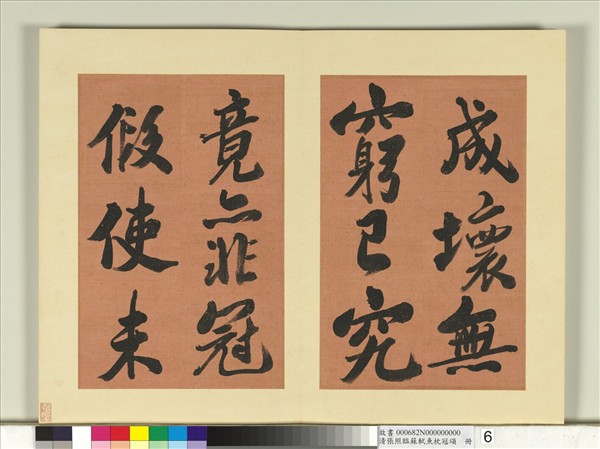 成壞無
窮已究
竟亦非冠
假使未
故書 000682N000000000
清張照臨蘇軾魚枕冠頌 冊
6